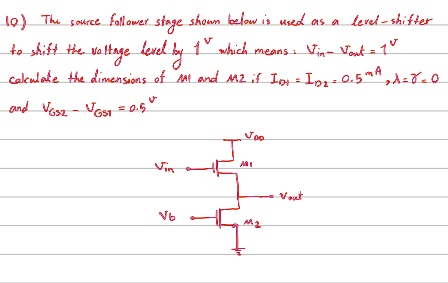 10) The source follower stage shown below is used as a level-shifter
to shift the voltage level by 1V which means: Vin - Vout = 1V
calculate the dimensions of M1 and M2 if ID1 = ID2 = 0.5 mA, λ=γ=0
and VGS2 - VGS1 = 0.5V
VDD
Vin M1
Vout
Vb M2